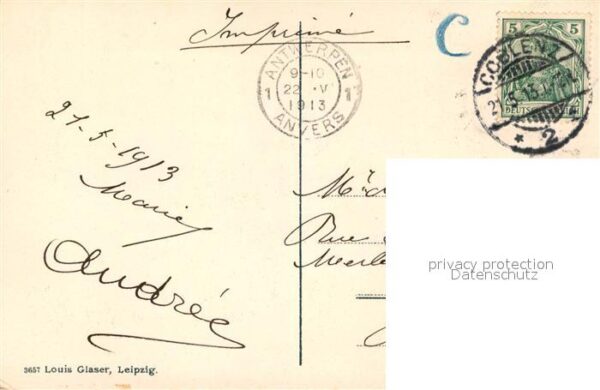 Imprimé
C
5 5
DEUTSCHES REICH
COBLENZ
21.5.13
* 2
ANTWERPEN
9-10
1 22 V 1
1913
ANVERS
21-5-1913
Marie
Andrée
Rue
privacy protection
Datenschutz
3657 Louis Glaser, Leipzig.